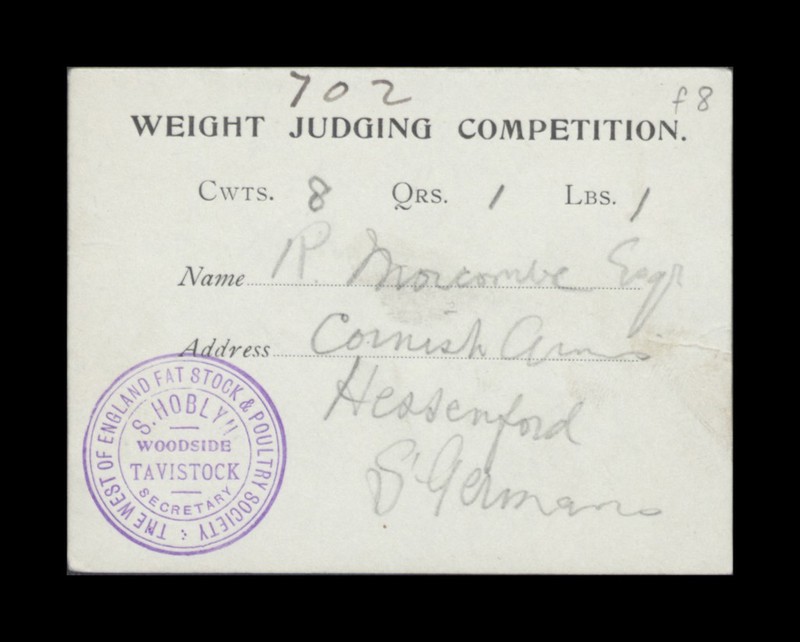 702
f8
WEIGHT JUDGING COMPETITION.
CWTS. 8 QRS. 1 LBS. 1
Name R. Morcombe Esqr
Address Cornish Arms
Hessenford
St Germans
THE WEST OF ENGLAND FAT STOCK & POULTRY SOCIETY
S. HOBLYN
WOODSIDE
TAVISTOCK
SECRETARY